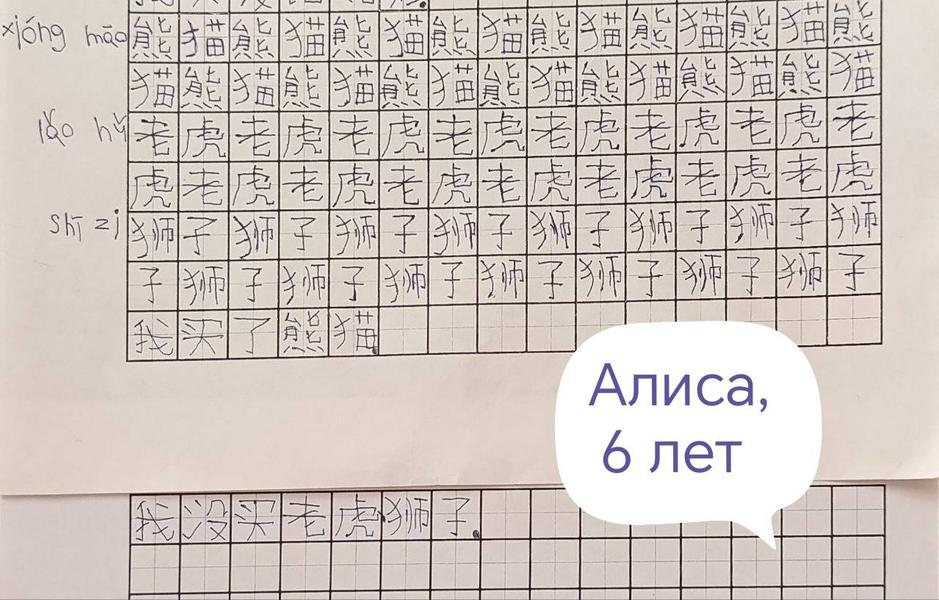 xióng māo 熊猫熊猫熊猫熊猫熊猫熊猫熊猫熊
猫熊猫熊猫熊猫熊猫熊猫熊猫熊猫
lǎo hǔ 老虎老虎老虎老虎老虎老虎老虎老
虎老虎老虎老虎老虎老虎老虎老虎
shī zi 狮子狮子狮子狮子狮子狮子狮子狮
子狮子狮子狮子狮子狮子狮子狮子
我买了熊猫.
我没买老虎狮子.
Алиса,
6 лет